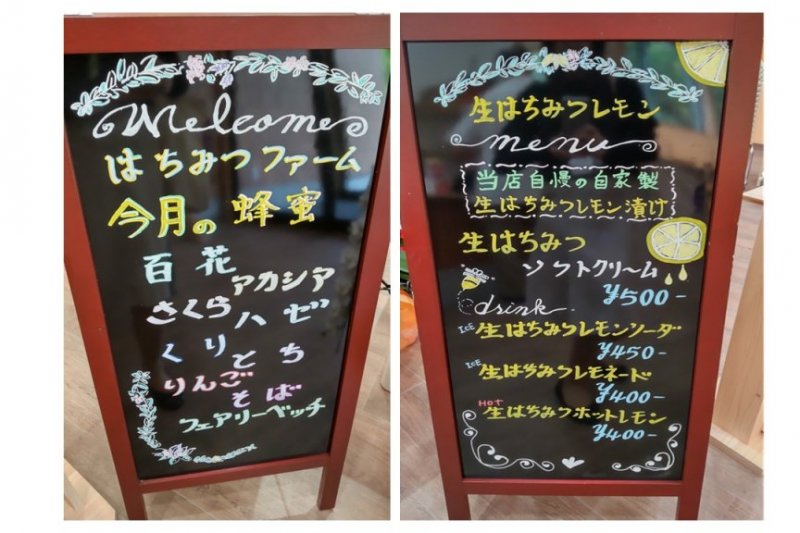 Welcome
はちみつファーム
今月の蜂蜜
百花
アカシア
さくら
ハゼ
くり
とち
りんご
そば
フェアリーベッチ
生はちみつレモン
menu
当店自慢の自家製
生はちみつレモン漬け
生はちみつ
ソフトクリーム
¥500-
drink
ICE 生はちみつレモンソーダ
¥450-
ICE 生はちみつレモネード
¥400-
HOT 生はちみつホットレモン
¥400-